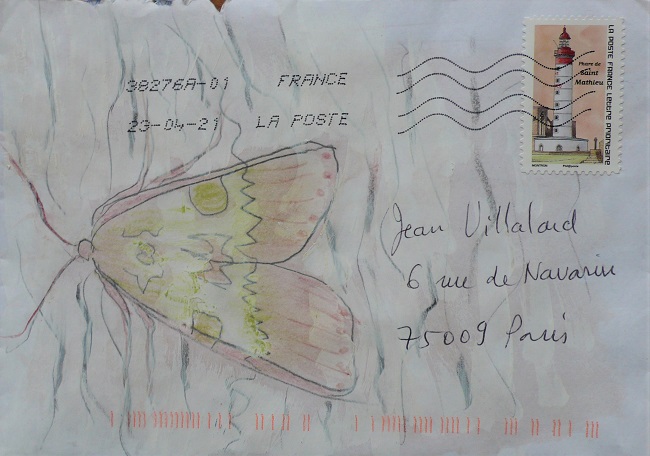 38276A-01 FRANCE
23-04-21 LA POSTE
Phare de
Saint
Mathieu
LA POSTE FRANCE Lettre prioritaire
Jean Villalard
6 rue de Navarin
75009 Paris